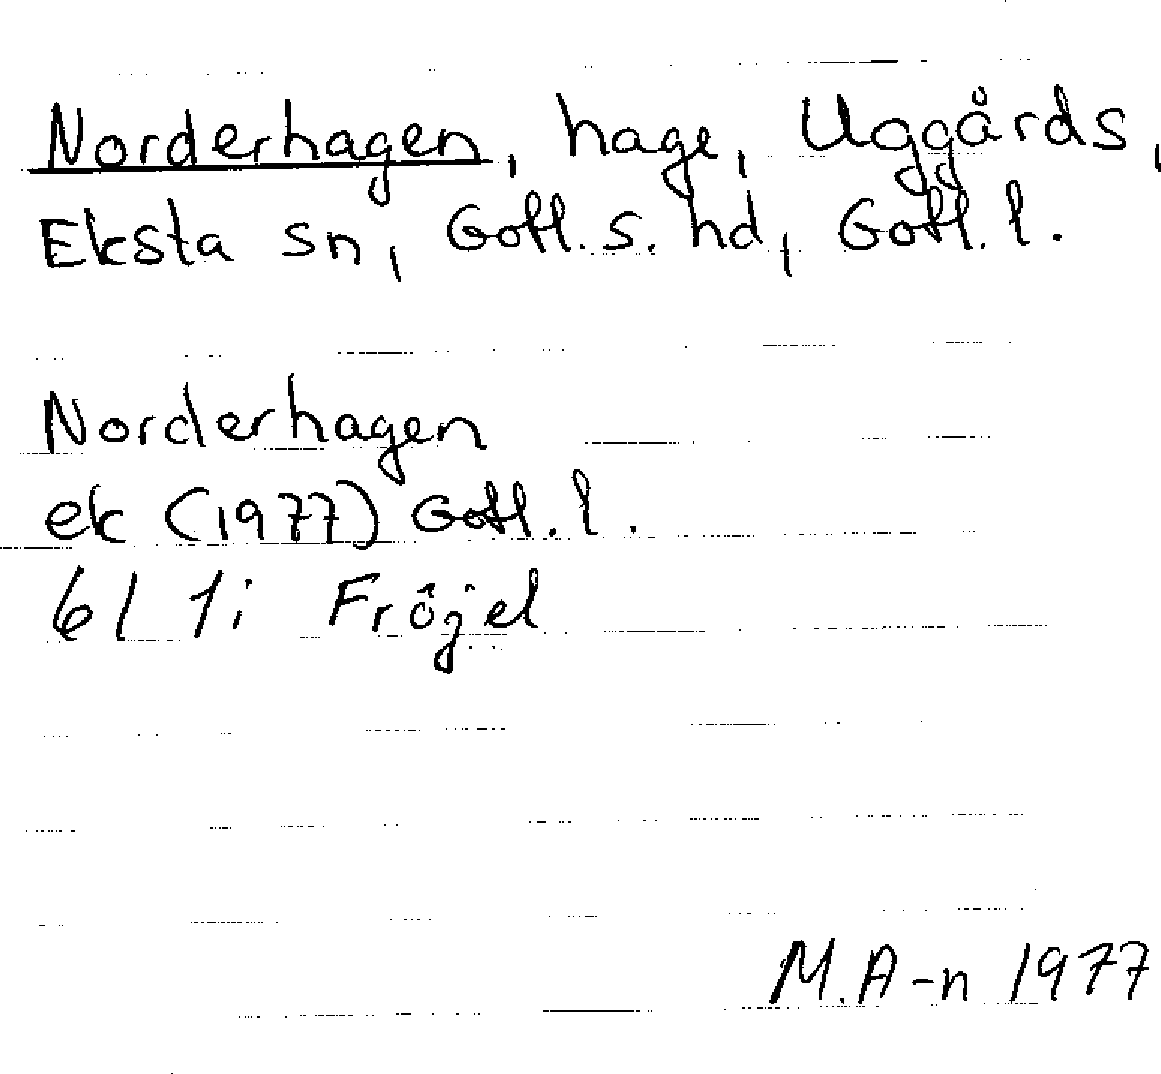 Norderhagen, hage, Uggårds,
Eksta sn, Gotl. s. hd, Gotl. l.
Norderhagen
ek (1977) Gotl. l.
6I 1i Fröjel
M.A-n 1977